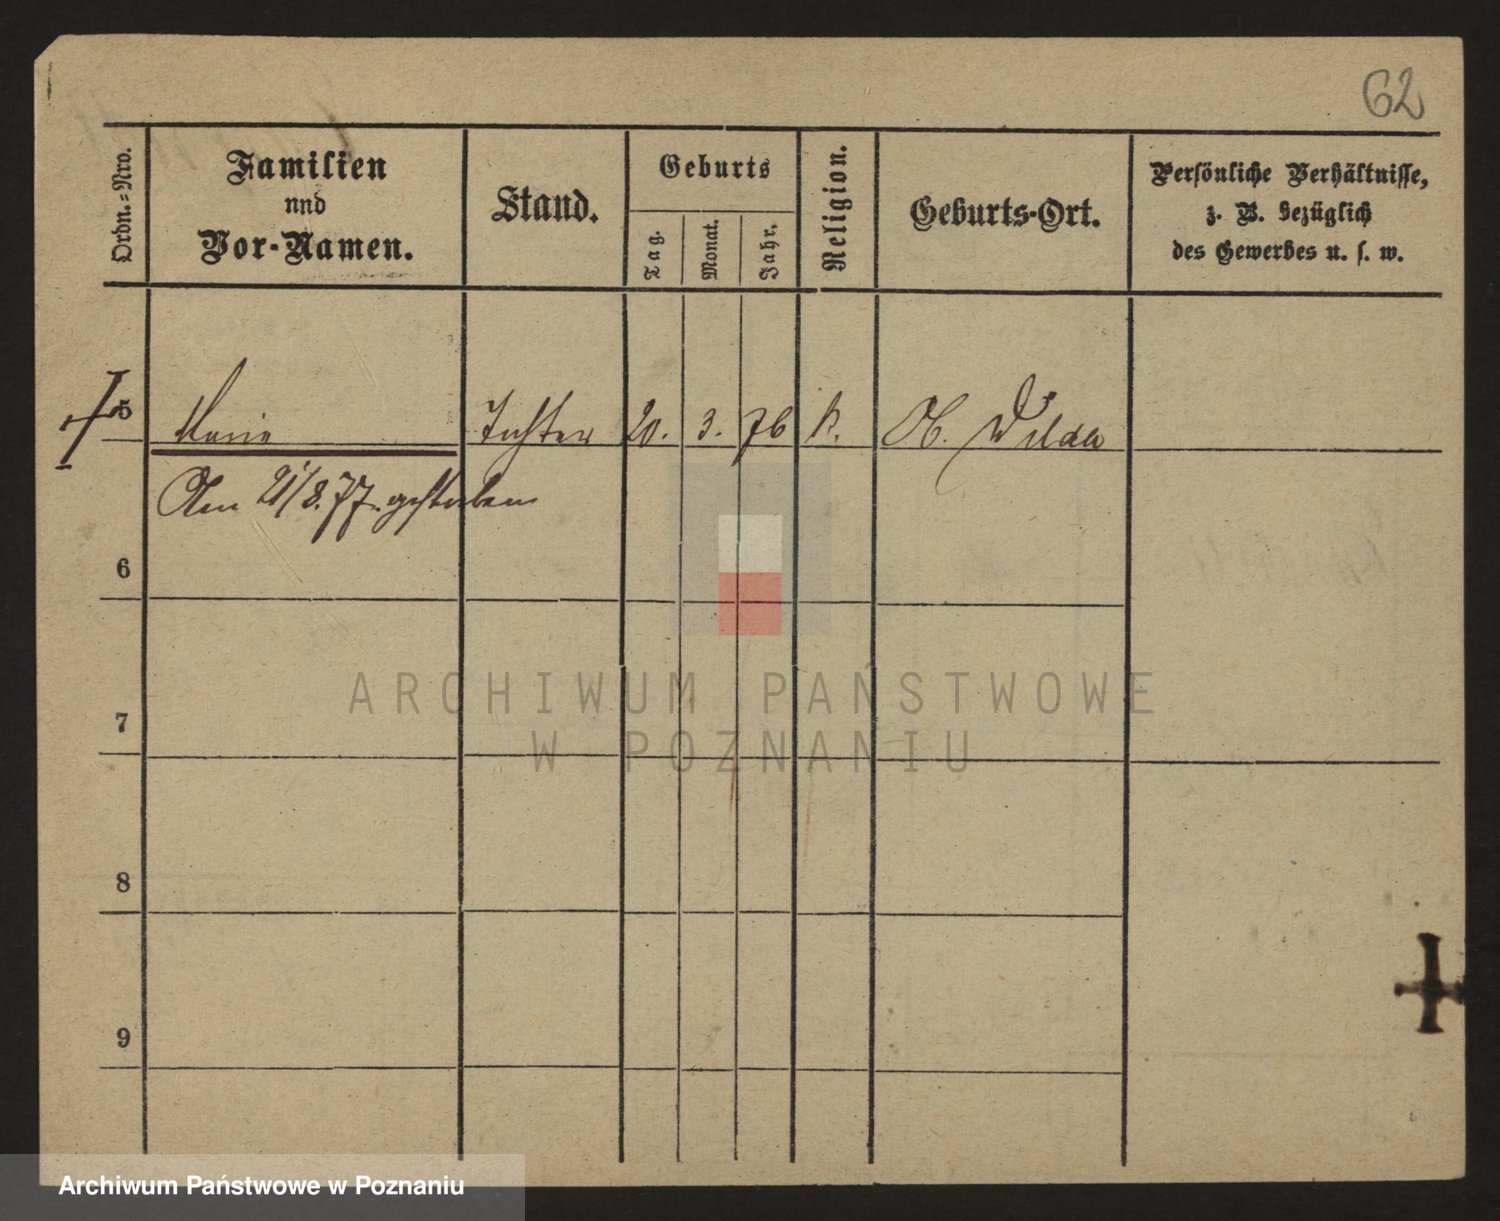 62
Ordn.-Nro.
Familien
und
Vor-Namen.
Stand.
Geburts
Tag.
Monat.
Jahr.
Religion.
Geburts-Ort.
Persönliche Verhältnisse,
z. B. bezüglich
des Gewerbes u. s. w.
5 Marie Tochter 20. 3. 76 k. Ob. Wilda
Am 21/8. 77. gestorben
6
7
8
9
ARCHIWUM PAŃSTWOWE
W POZNANIU
Archiwum Państwowe w Poznaniu